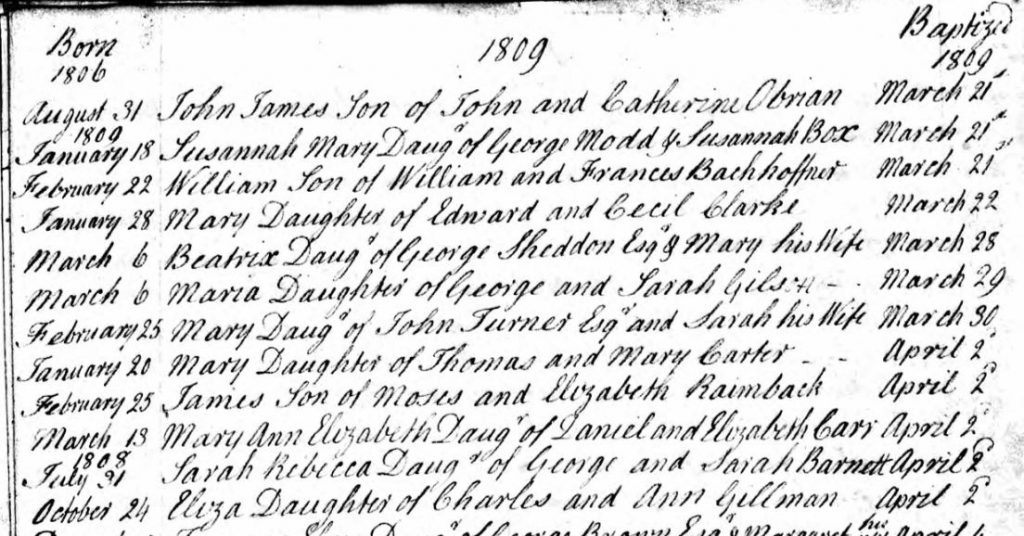 Born 1809 Baptized
1806 1809
August 31 John James Son of John and Catherine Obrian March 21st
1809
January 18 Susannah Mary Daugr of George Modd & Susannah Box March 21st
February 22 William Son of William and Frances Bachhoffner March 21st
January 28 Mary Daughter of Edward and Cecil Clarke March 22
March 6 Beatrix Daugr of George Sheddon Esqr & Mary his Wife March 28
March 6 Maria Daughter of George and Sarah March 29
February 25 Mary Daugr of John Turner Esqr and Sarah his Wife March 30
January 20 Mary Daughter of Thomas and Mary Carter - - April 2d
February 25 James Son of Moses and Elizabeth Raimback April 2d
March 13 Mary Ann Elizabeth Daugr of Daniel and Elizabeth Carr April 2d
1808
July 31 Sarah Rebecca Daugr of George and Sarah Barnett April 2d
October 24 Eliza Daughter of Charles and Ann Gillman April 2d
of George Brown Esqr & Margaret his April